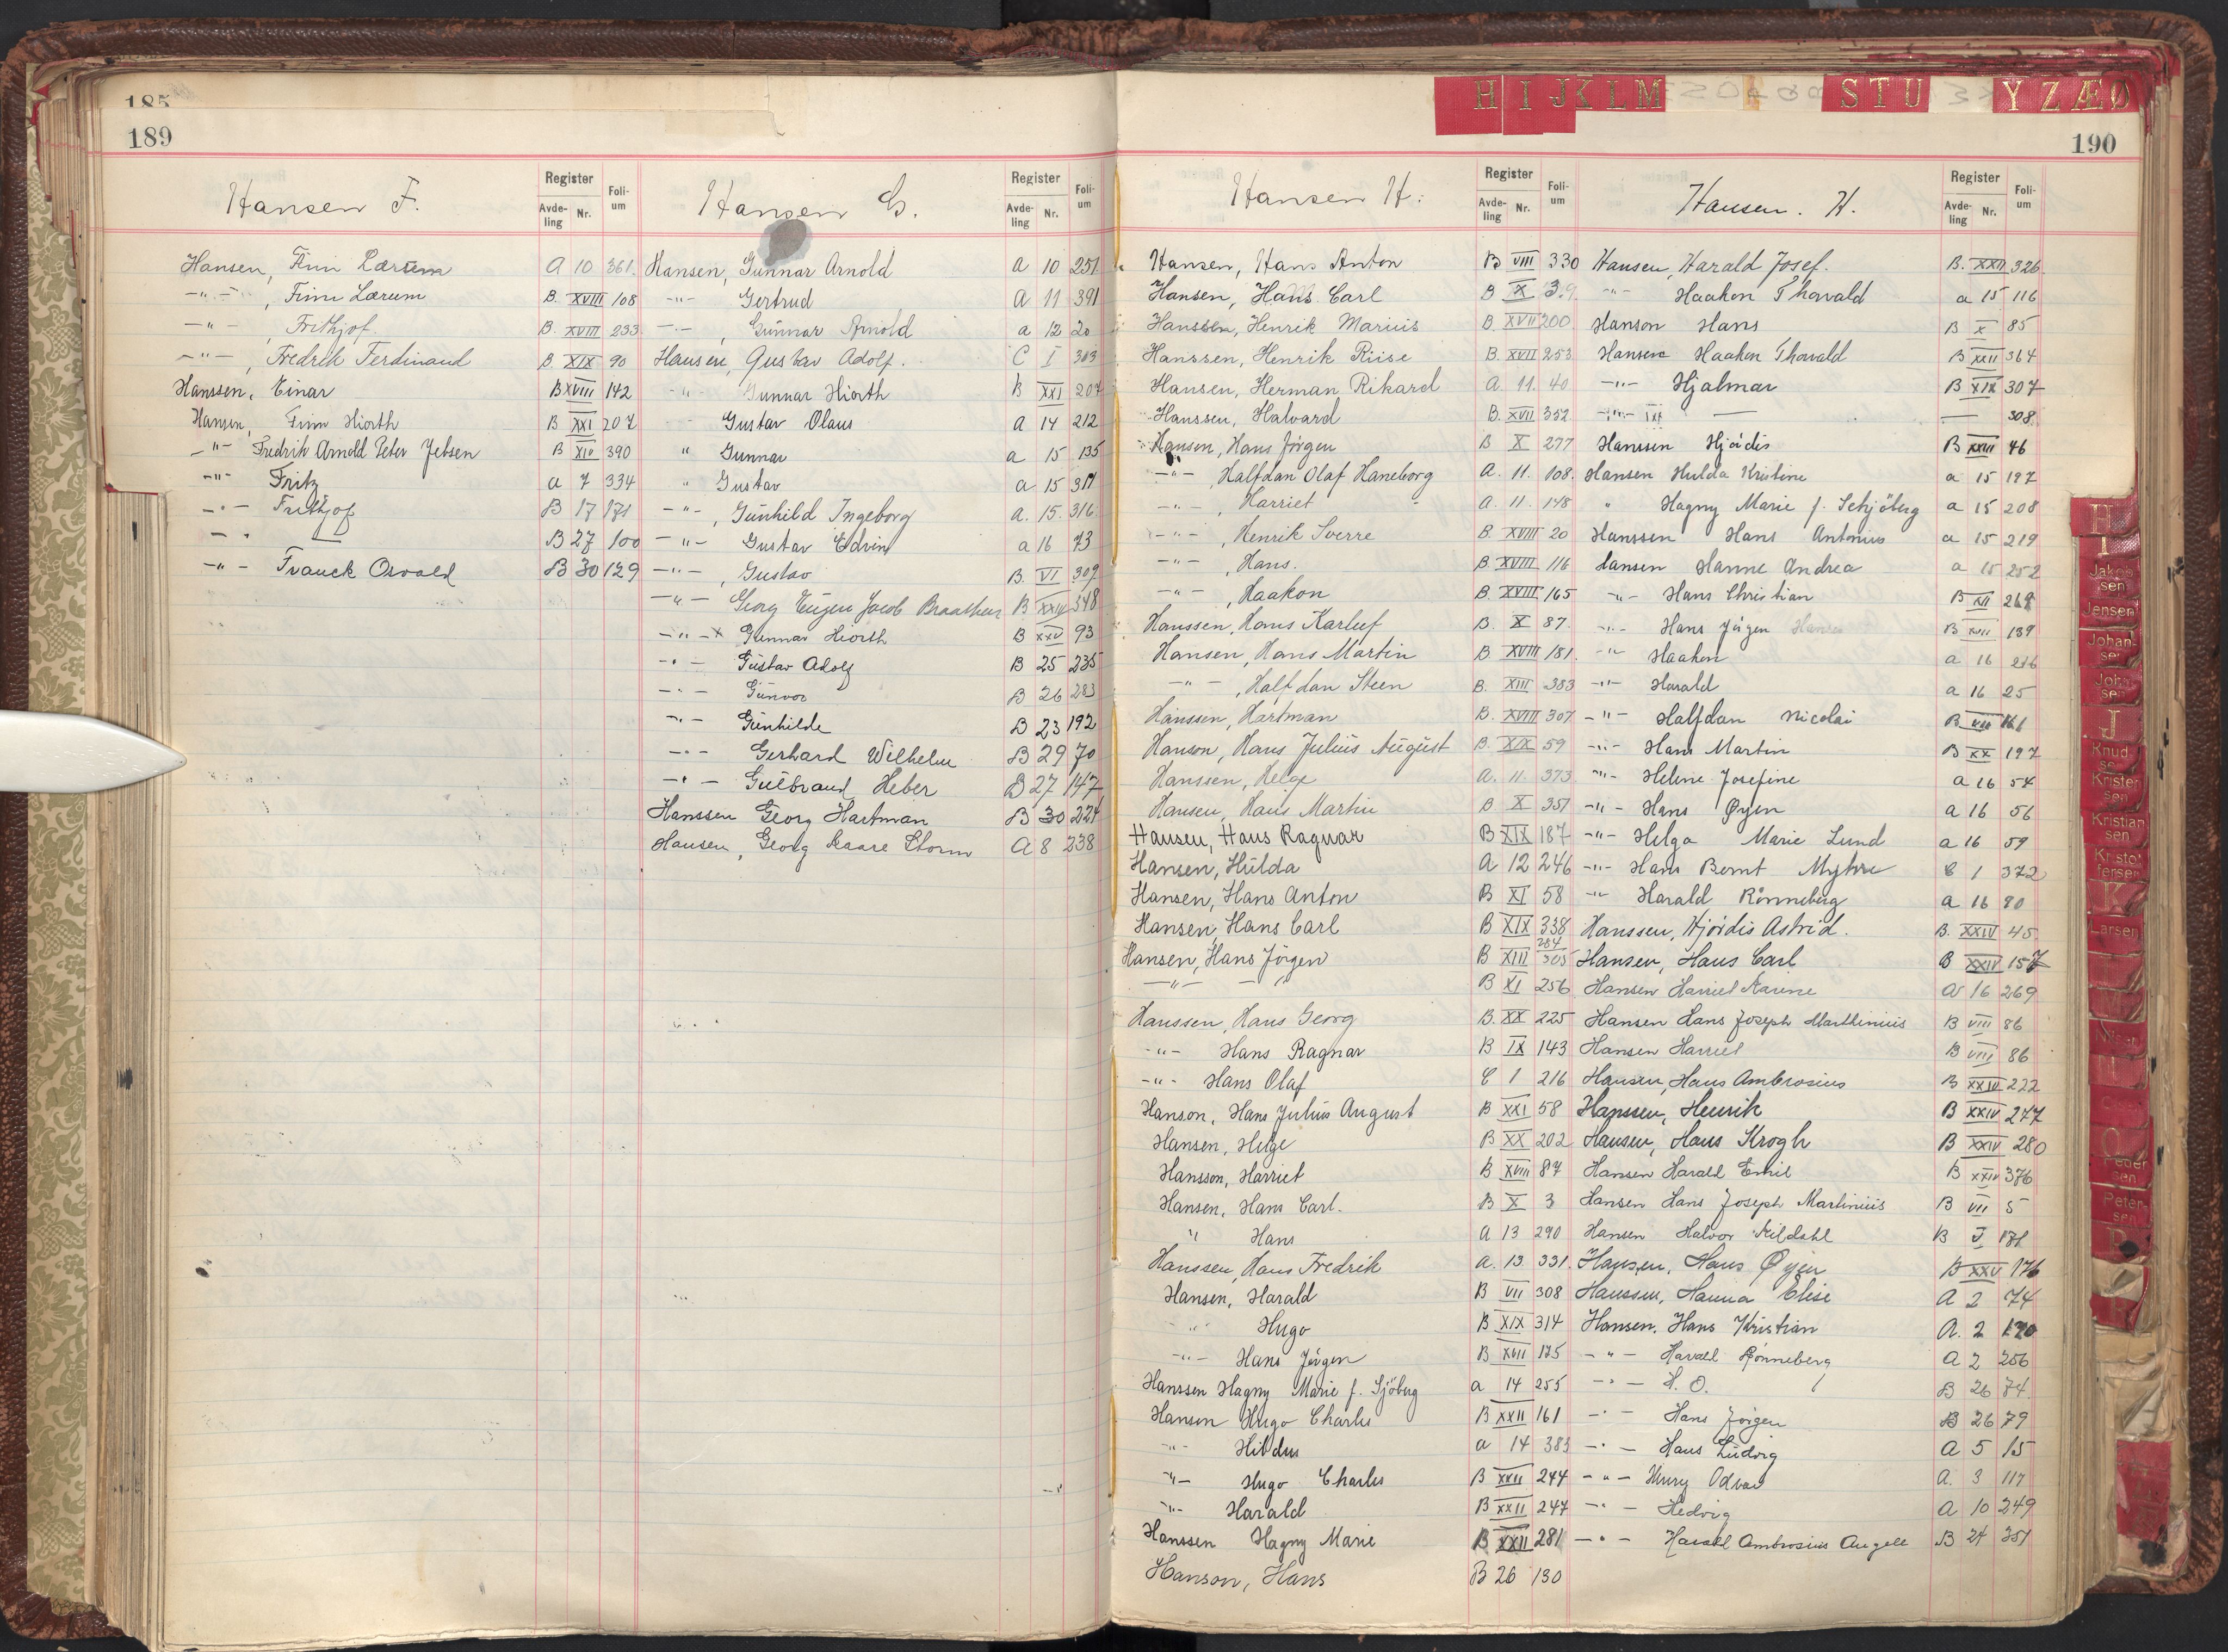 185
189
Hansen F.
Register
Avde-ling Nr.
Foli-um
Hansen, Finn Lærum A 10 361.
-"- , Finn Lærum B. XVIII 108
-"- , Frithjof. B. XVIII 233
-"- , Fredrik Ferdinand B. XIX 90
Hanssen, Einar B XVIII 142
Hansen, Finn Hiorth B XXI 207
-"- Fredrik Arnold Peter Jebsen B XIV 390
-"- Fritz a 7 334
-"- Frithjof B 17 171
-"- B 27 100
-"- Franck Osvald B 30 129
Hansen G.
Register
Avde-ling Nr.
Foli-um
Hansen, Gunnar Arnold a 10 251
-"- Gertrud A 11 391
-"- , Gunnar Arnold a 12 20
Hansen, Gustav Adolf. C I 303
-"- Gunnar Hiorth B XXI 207
Gustav Olaus a 14 212
" Gunnar a 15 135
" Gustav a 15 317
-"- , Gunhild Ingeborg a. 15. 316.
-"- Gustav Edvin a 16 73
-"- , Gustav B. VI 309
-"- Georg Eugen Jacob Braathen B XXIV 348
-"- Gunnar Hiorth B XXV 93
-"- Gustav Adolf B 25 235
-"- Gunvor B 26 283
-"- Gunhilde B 23 192
-"- Gerhard Wilhelm B 29 70
-"- Gulbrand Heber B 27 147
Hanssen Georg Hartman B 30 224
Hansen, Georg Kaare Storm A 8 238
H I J K L M S T U Y Z Æ Ø
190
Hansen H.
Register
Avde-ling Nr.
Foli-um
Hansen, Hans Anton B VIII 330
Hansen, Hans Carl B X 3
Hanssen, Henrik Marius B. XVII 200
Hanssen, Henrik Riise B. XVII 253
Hansen, Herman Rikard A. 11. 40
Hanssen, Halvard B. XVII 352
Hansen, Hans Jörgen B X 277
-"- , Halfdan Olaf Haneborg A. 11. 108.
-"- , Harriet A. 11. 148
-"- , Henrik Sverre B. XVIII 20
-"- , Hans. B. XVIII 116
-"- , Haakon B. XVIII 165
Hanssen, Hans Karluf B. X 87.
Hansen, Hans Martin B XVIII 181.
-"- , Halfdan Steen B. XIII 383
Hanssen, Hartman B. XVIII 307
Hanson, Hans Julius August B. XIX 59
Hanssen, Helge A. 11. 373
Hansen, Hans Martin B X 351
Hansen, Hans Ragnar B XIX 187
Hansen, Hulda A 12 246
Hansen, Hans Anton B XI 58
Hansen, Hans Carl B XIX 338
Hansen, Hans Jörgen B XIII 284 305
-"- -"- B XI 256
Hanssen, Hans Georg B. XX 225
-"- Hans Ragnar B IX 143
-"- Hans Olaf C 1 216
Hanson, Hans Julius August B XXI 58
Hansen, Helge B XX 202
Hansson, Harriet B XVIII 87
Hansen, Hans Carl. B X 3
" Hans A 13 290
Hanssen, Hans Fredrik A. 13. 331.
Hansen, Harald B VII 308
" Hugo B XIX 314
-"- Hans Jörgen B XVII 175
Hanssen Hagny Marie f. Sjöberg a 14 255
Hansen Hugo Charles B XXII 161
-"- a 14 383
-"- Hugo Charles B XXII 244
-"- Harald B XXII 247
Hanssen Hagny Marie B XXII 281
Hanson, Hans B 26 130
Hansen. H.
Register
Avde-ling Nr.
Foli-um
Hansen, Harald Josef. B. XXII 326.
-"- Haakon Thorvald a 15 116
Hanson Hans B X 85
Hansen Haakon Thorvald B XXII 364
-"- Hjalmar B XIX 307
-"- 308
Hanssen Hjørdis B XXIII 46
Hansen Hulda Kristine a 15 197
" Hagny Marie f. Schjöberg a 15 208
Hanssen Hans Antonius a 15 219
Hansen Hanne Andrea a 15 252
-"- Hans Christian B XII 268
-"- Hans Jörgen Hansen B XVII 139
-"- Haakon a 16 216
-"- Harald a 16 25
-"- Halfdan Nicolai B 161
-"- Hans Martin B XX 197
-"- Helene Josefine a 16 54
-"- Hans Øyen a 16 56
-"- Helga Marie Lund a 16 59
-"- Hans Bernt Myhre C 1 372
-"- Harald Rönneberg a 16 80
Hanssen, Hjördis Astrid. B. XXIV 45
Hansen, Hans Carl B XXIV 157
Hansen Harriet Karine a 16 269
Hansen Hans Joseph Marthinius B VIII 86
Hansen Harriet B VIII 86
Hansen, Hans Ambrosius B XXIV 222
Hanssen, Henrik B XXIV 247
Hansen, Hans Krogh B XXIV 280
Hansen Harald Emil B XXIV 376
Hansen Hans Joseph Martinius B VII 5
Hansen Halvor Kildahl B V 171
Hansen, Hans Øyen B XXV 176
Hanssen, Hanna Elise A 2 74
Hansen, Hans Kristian A. 2 170
-"- Harald Rønneberg A 2 256
-"- H. O. B 26 74
-"- Hans Jörgen B 26 79
-"- Hans Ludvig A 5 15
-"- Henry Odvar A. 3 117
-"- Hedvig A 10 249
-"- Harald Ambrosius Angell B 24 351
H
I
Jakob-sen
Jensen
Johan-sen
John-sen
J
Knud-sen
Kristen-sen
Kristian-sen
Kristof-fersen
K
Larsen
Peder-sen
Peter-sen